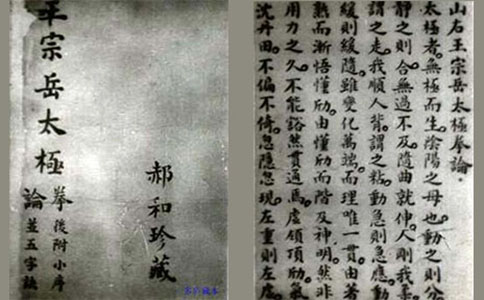 王宗岳太極
拳論
後附小序
並五字訣
郝和珍藏
山右王宗岳太極拳論
太極者。無極而生。陰陽之母也。動之則分
靜之則合。無過不及。隨曲就伸。人剛我柔
謂之走。我順人背。謂之粘。動急則急應。動
緩則緩隨。雖變化萬端。而理唯一貫。由著
熟而漸悟懂勁。由懂勁而階及神明。然非
用力之久。不能豁然貫通焉。虛領頂勁。氣
沈丹田。不偏不倚。忽隱忽現。左重則左虛